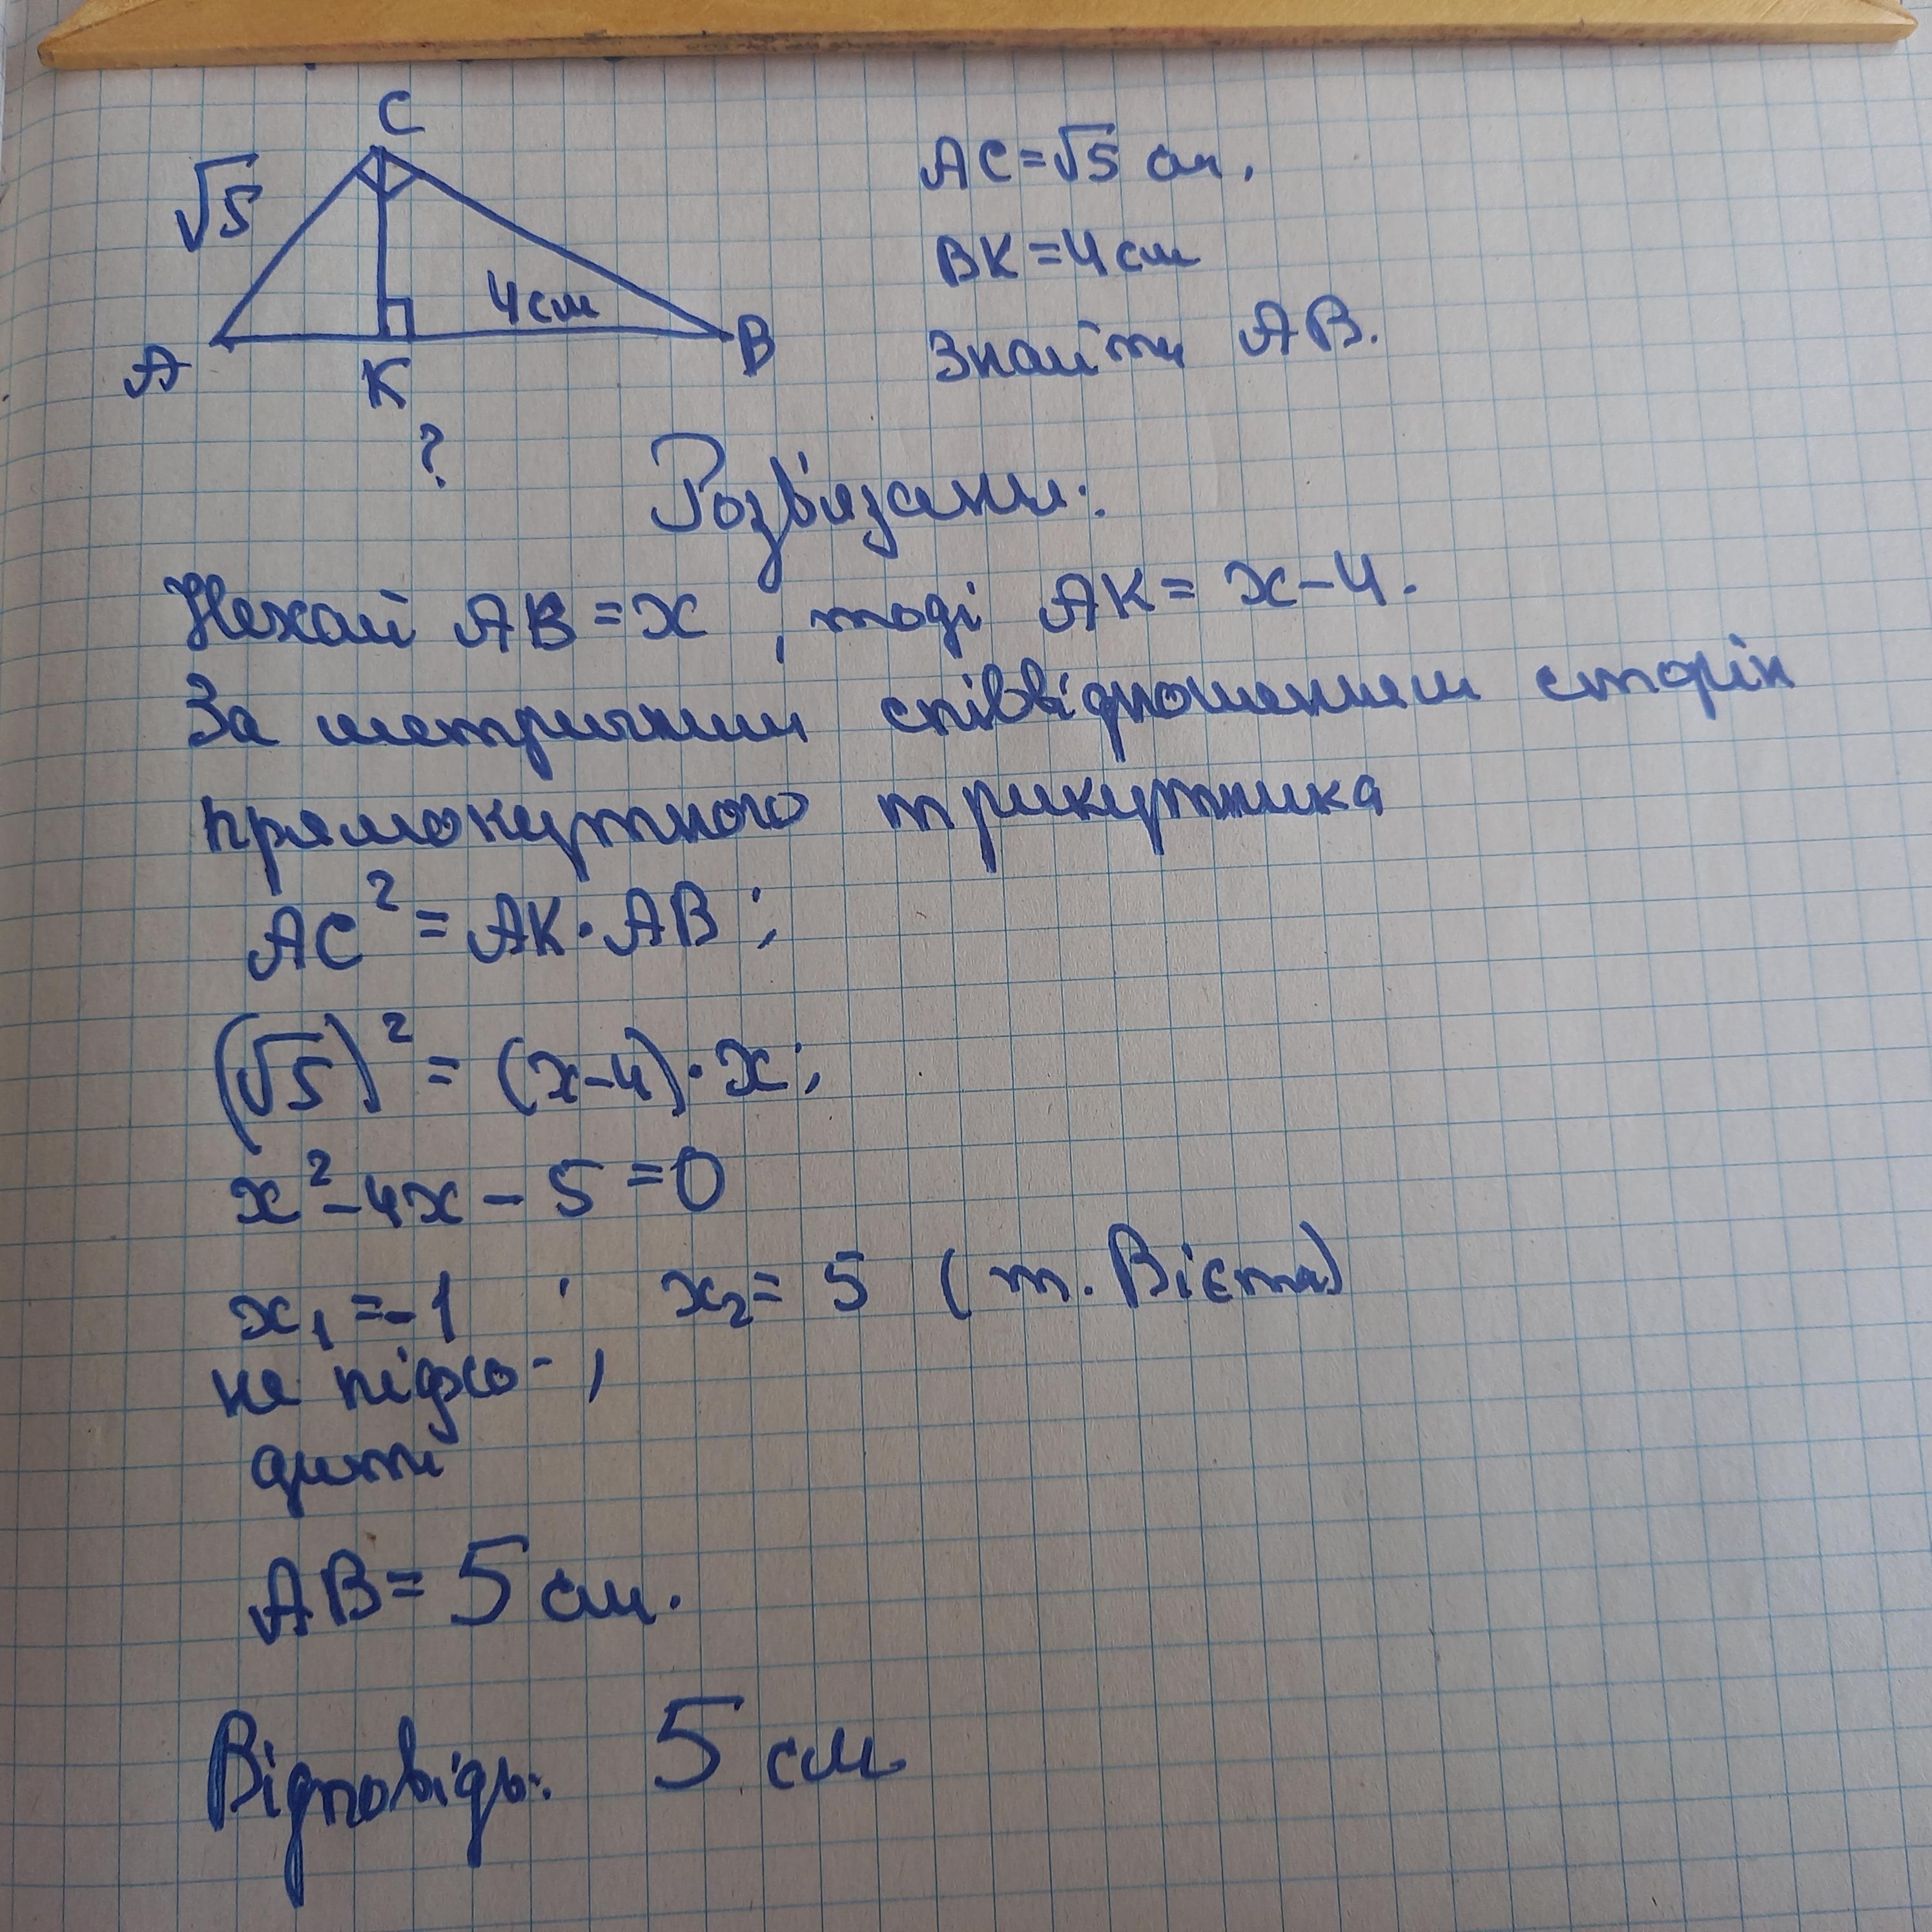 C
√5
4см
A
K
B
?
AC=√5 см.
BK=4см
Знайти AB.
Розв'язання:
Нехай AB=x, тоді AK=x-4.
За метричним співвідношенням сторін
прямокутного трикутника
AC²=AK·AB;
(√5)²=(x-4)·x;
x²-4x-5=0
x₁=-1 ; x₂=5 (т. Вієта)
не підхо-
дить
AB=5см.
Відповідь: 5 см